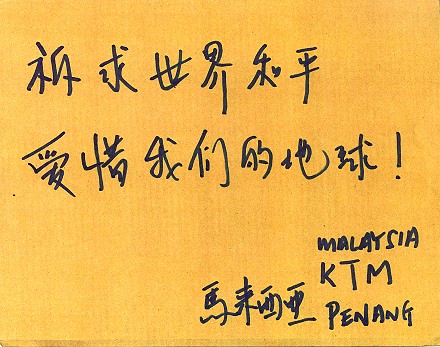 祈求世界和平
愛惜我们的地球！
MALAYSIA
KTM
馬来西亞 PENANG